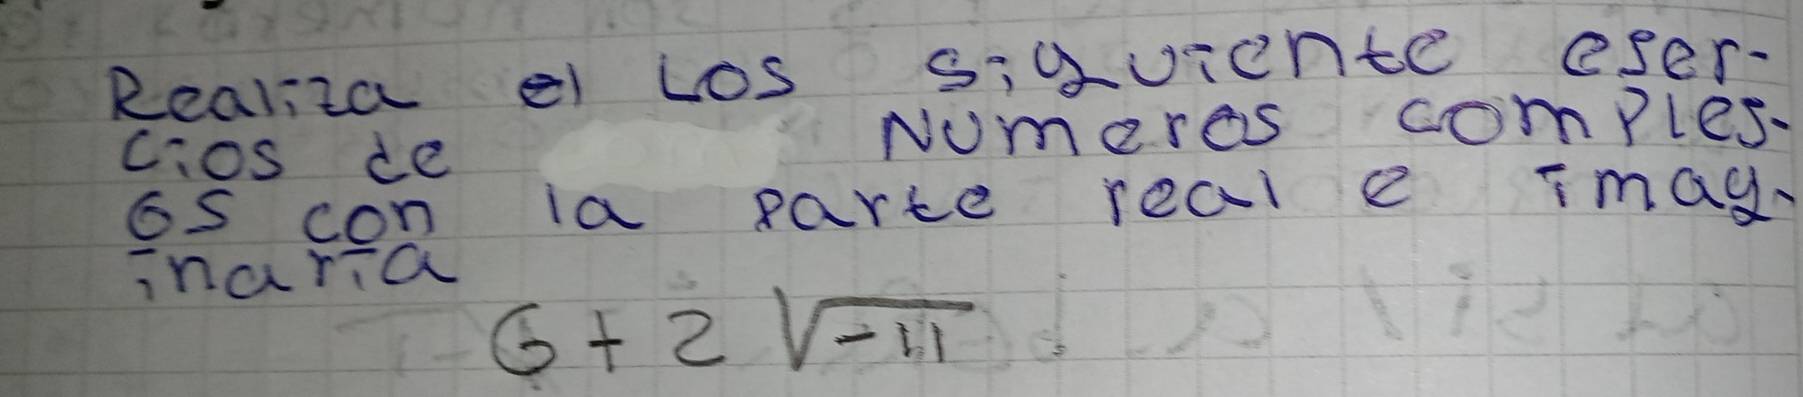 Realiza el Los siguiente ejer-
cios de Numeros comples-
os con la parte real e imag-
inaria
6 + 2 √-11